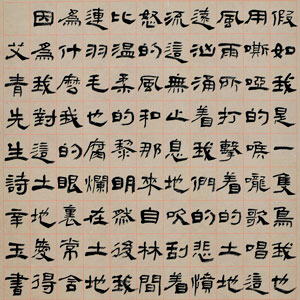 假如我是一隻鳥我也
用嘶啞的喉嚨歌唱這
風雨所打擊着的土地
這汹涌着我們的悲憤
流這無止息地吹刮着
怒的風和那來自林間
比溫柔的黎明然後我
連羽毛也腐爛在土地
為什麼我的眼裏常含
因為我對這土地愛得
艾青先生詩幸玉書